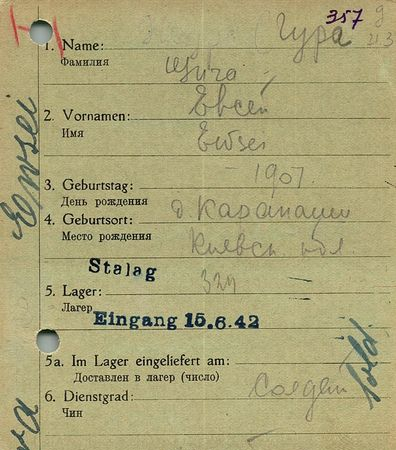 357
1. Name: Гура
Фамилия
2. Vornamen: Евсей
Имя
Ewsei
3. Geburtstag: 1907
День рождения
4. Geburtsort: д. Карапаши
Место рождения
Киевск обл.
Stalag
5. Lager: 329
Лагерь
Eingang 15.6.42
5a. Im Lager eingeliefert am:
Доставлен в лагерь (число)
6. Dienstgrad: Солдат
Чин
Sold.
Ewsei